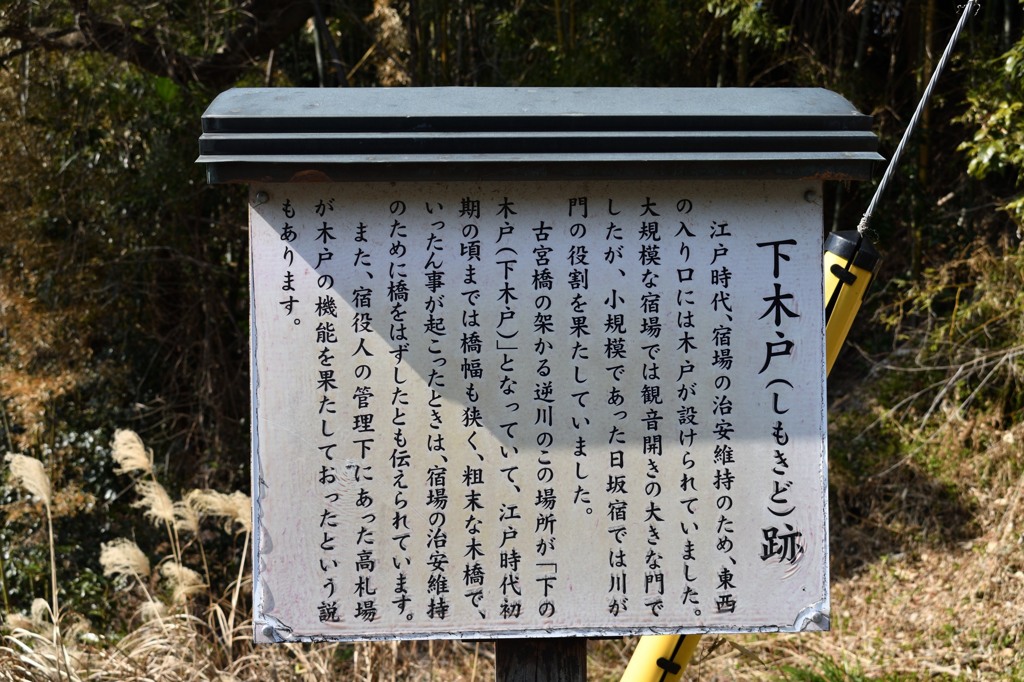 下木戸(しもきど)跡
江戸時代、宿場の治安維持のため、東西
の入り口には木戸が設けられていました。
大規模な宿場では観音開きの大きな門で
したが、小規模であった日坂宿では川が
門の役割を果たしていました。
古宮橋の架かる逆川のこの場所が「下の
木戸(下木戸)」となっていて、江戸時代初
期の頃までは橋幅も狭く、粗末な木橋で、
いったん事が起こったときは、宿場の治安維持
のために橋をはずしたとも伝えられています。
また、宿役人の管理下にあった高札場
が木戸の機能を果たしておったという説
もあります。